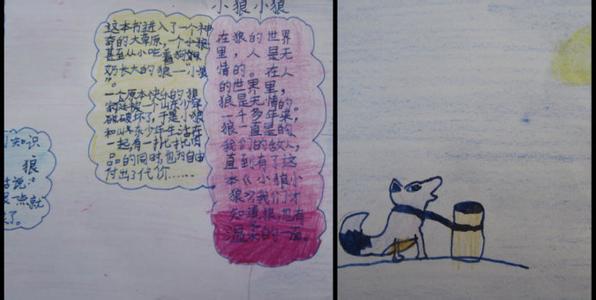 小狼小狼
这本书进入了一个神
奇的大草原，一个小狼
甚至从小吃着狗妈
奶长大的狼—"小狼
"。
一个原本快乐的狼
和山东少年生活在
一起，有一批
品的同时，也为自由
付出了代价……
在狼的世界
里，人是无
情的。在人
的世界里，
狼是无情的。
一千多年来，
狼一直是的
我们的敌人，
直到有了这
本《小狼小
狼》我们才
知道狼也有
温柔的一面。
知识
狼
说："
一点就
了。